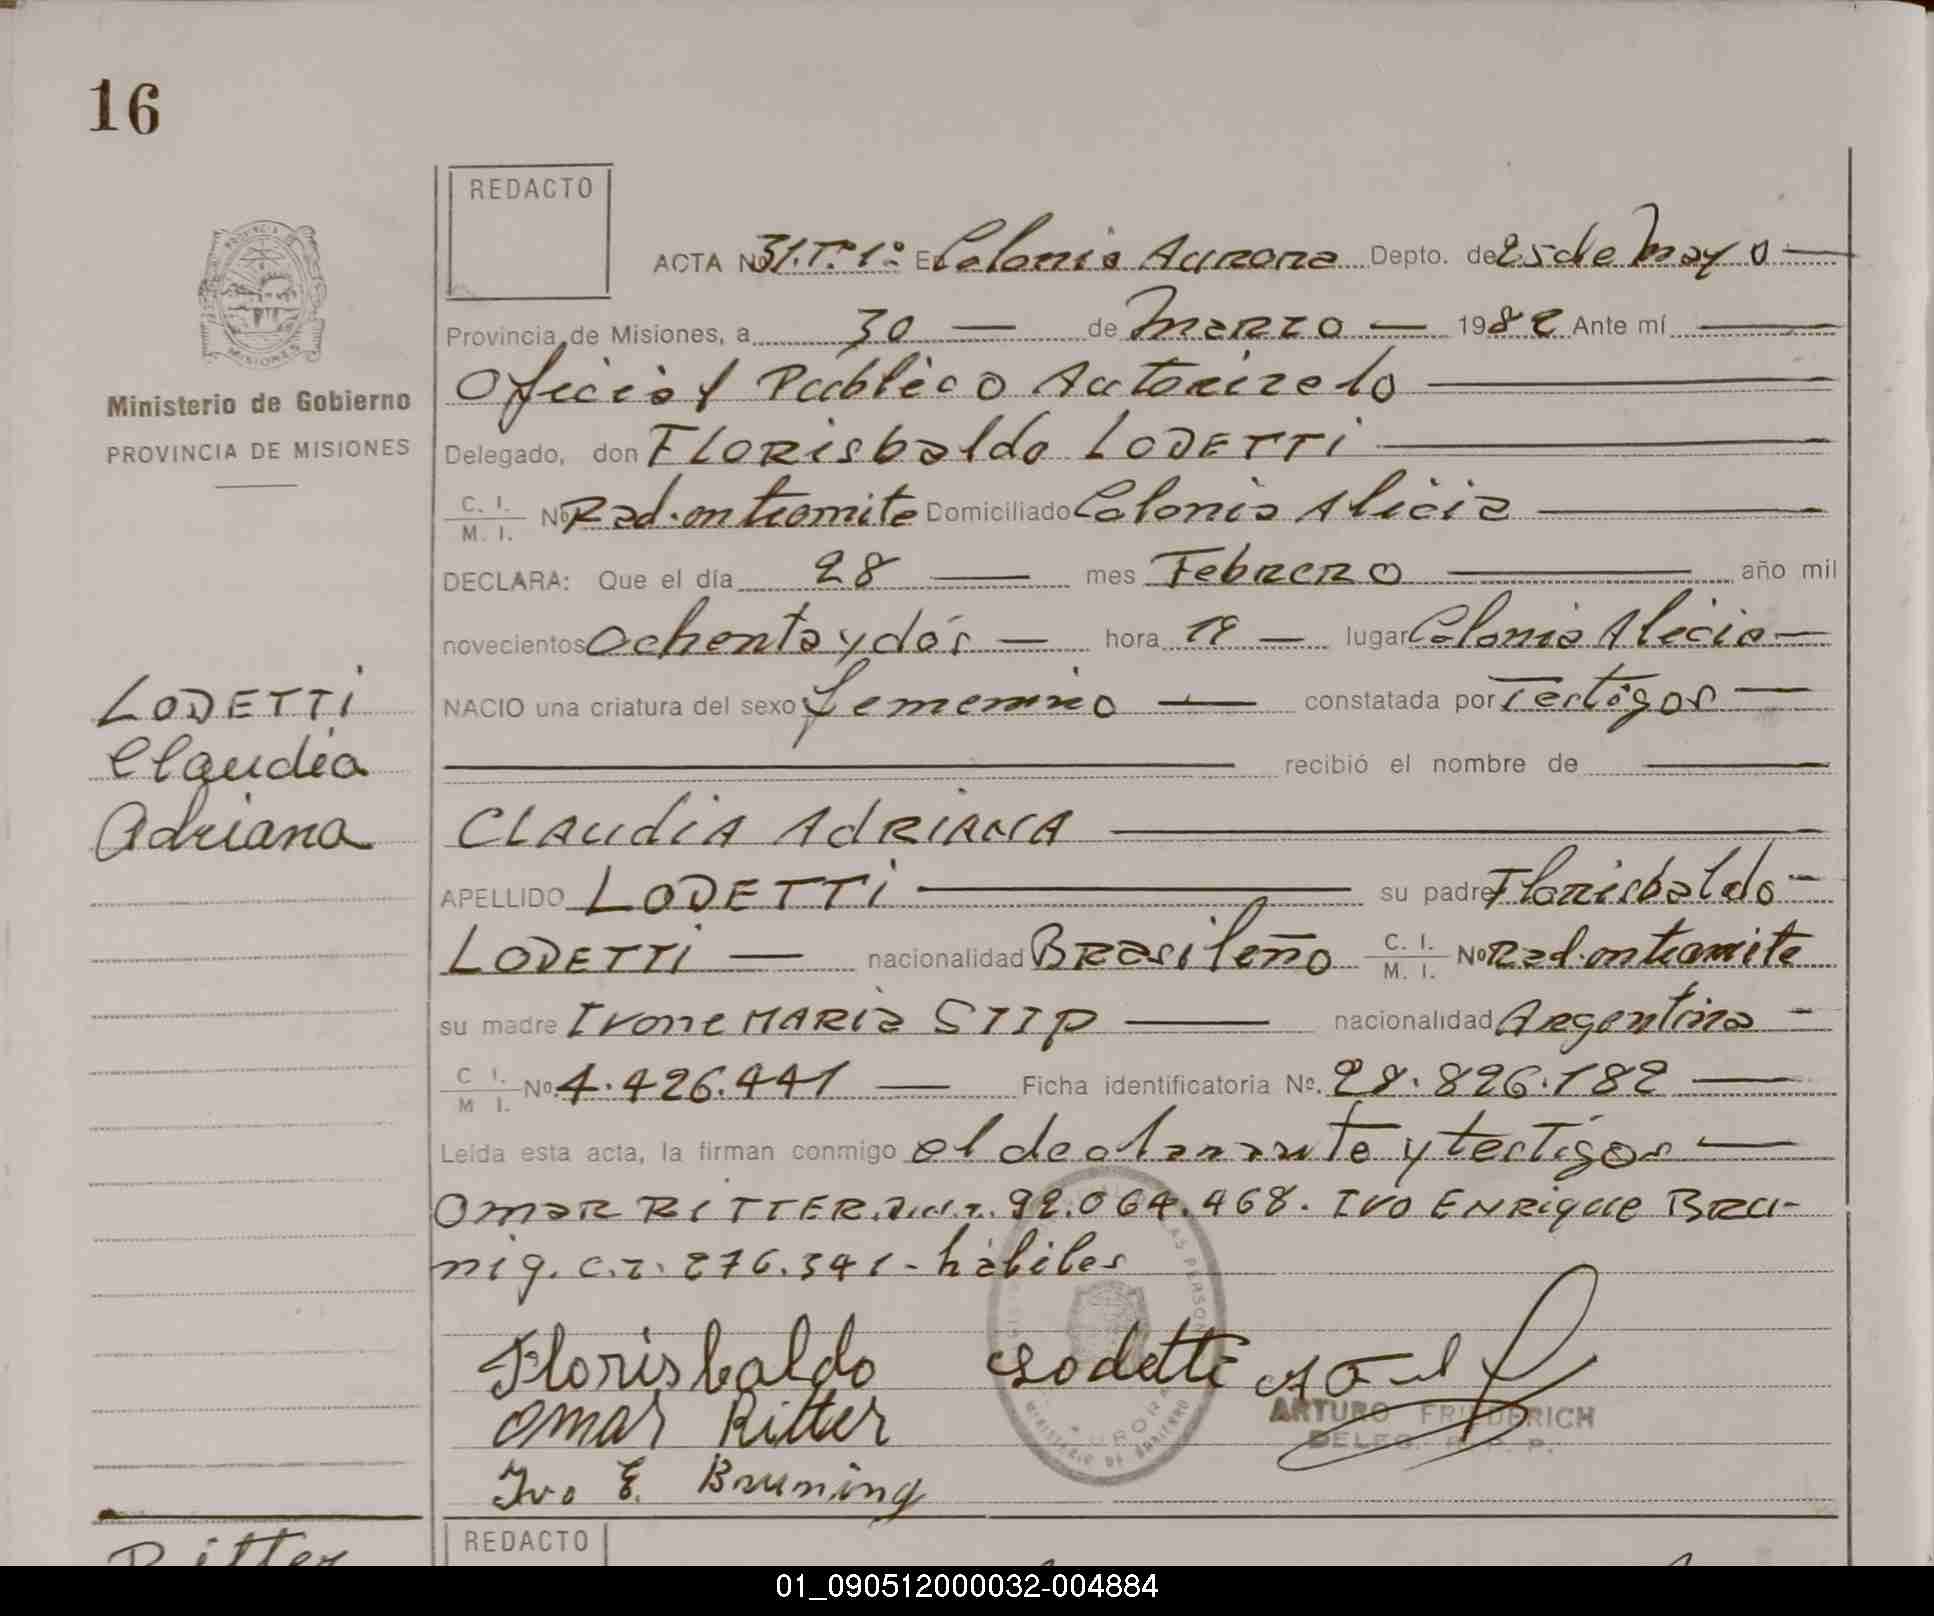 16
REDACTO
ACTA Nº 31.Tº1º En Colonia Aurora Depto. de 25 de Mayo
Provincia de Misiones, a 30 de Marzo 1982 Ante mí
Oficial Publico Autorizado
Ministerio de Gobierno
PROVINCIA DE MISIONES
Delegado, don FLORisbaldo LODETTi
C. I.
M. I. Nº Rad. en tramite Domiciliado Colonia Alicia
DECLARA: Que el día 28 mes Febrero año mil
novecientos ochenta y dós hora 19 lugar Colonia Alicia
LODETTi
Claudia
Adriana
NACIO una criatura del sexo femenino constatada por Testigos
recibió el nombre de
CLAUdiA AdRIANA
APELLIDO LODETTi su padre Florisbaldo
LODETTi nacionalidad Brasileño C. I.
M. I. Nº Rad. en tramite
su madre Ivone MARia STIP nacionalidad Argentina
C I.
M I. Nº 4.426.441 Ficha identificatoria Nº. 28.826.182
Leída esta acta, la firman conmigo el declarante y testigos
Omar RITTER. D.N.I. 92.064.468. IVO ENRique BRU-
nig. C.I. 276.341 - hábiles
Florisbaldo Lodetti
Omar Ritter
ARTURO FRIEDERICH
DELEG. R. P. P.
Ivo E. Bruning
REDACTO
Ritter
01_090512000032-004884